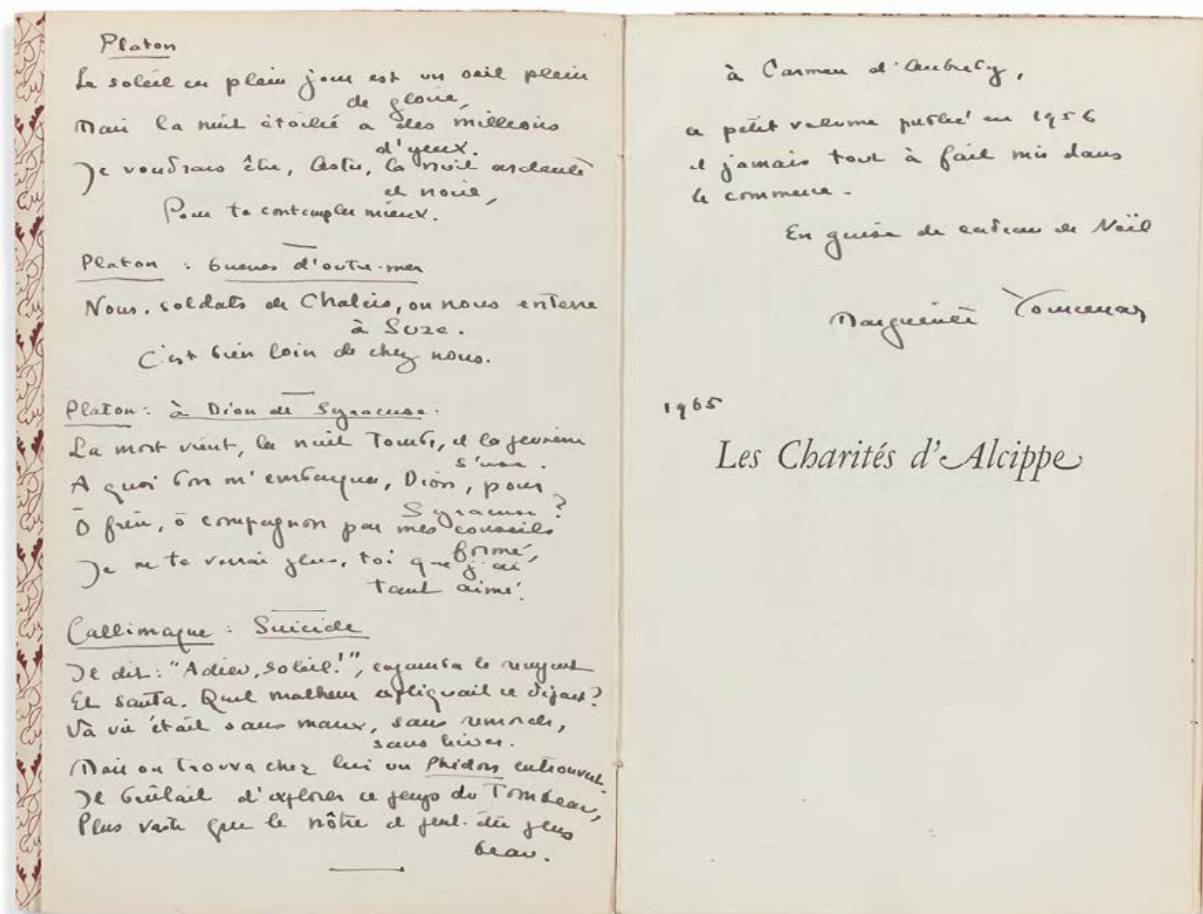 Platon
Le soleil en plein jour est un oeil plein
de gloire,
Mais la nuit étoilée a des millions
d'yeux.
Je voudrais être, Aster, la nuit ardente
et noire,
Pour te contempler mieux.
Platon : Guerres d'outre-mer
Nous, soldats de Chalcis, on nous enterre
à Suze.
C'est bien loin de chez nous.
Platon : à Dion de Syracuse.
La mort vient, la nuit tombe, et la
s'use.
A quoi bon m'embarquer, Dion, pour
Syracuse ?
Ô frère, ô compagnon par mes conseils
formé,
Je ne te verrai plus, toi que j'ai
tant aimé.
Callimaque : Suicide
Il dit : "Adieu, soleil!", enjamba le rempart
Et sauta. Quel malheur expliquait ce départ ?
Sa vie était sans maux, sans remords,
sans hiver.
Mais on trouva chez lui un Phédon entrouvert.
Il brûlait d'explorer ce pays du Tombeau,
Plus vaste que le nôtre et peut-être plus
beau.
à Carmen d'Aubreby,
ce petit volume publié en 1956
et jamais tout à fait mis dans
le commerce -
En guise de cadeau de Noël
Marguerite Yourcenar
1965
Les Charités d'Alcippe